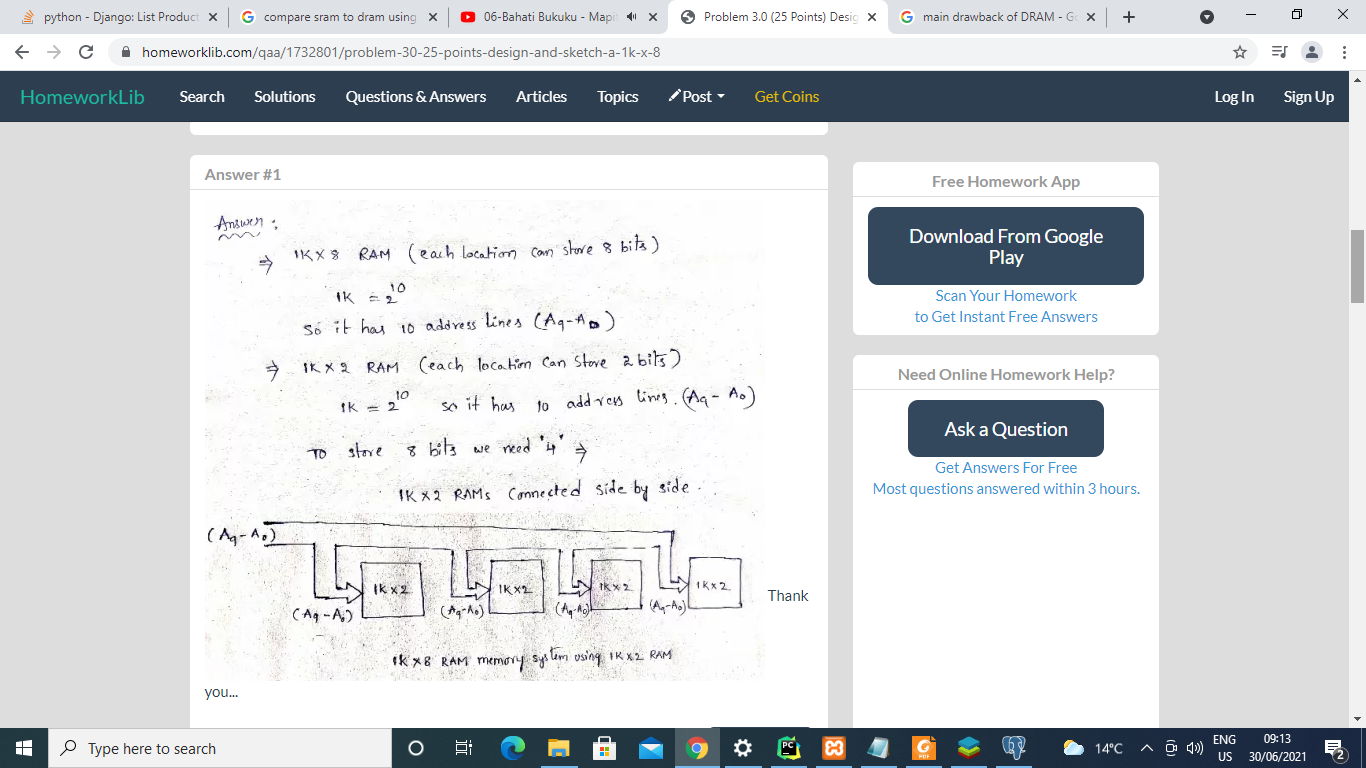 python - Django: List Product
compare sram to dram using
06-Bahati Bukuku - Mapi
Problem 3.0 (25 Points) Desig
main drawback of DRAM - Go
homeworklib.com/qaa/1732801/problem-30-25-points-design-and-sketch-a-1k-x-8
HomeworkLib
Search
Solutions
Questions & Answers
Articles
Topics
Post
Get Coins
Log In
Sign Up
Answer #1
Answer :
⇒ 1K X 8 RAM (each location can store 8 bits)
1K = 2^10
So it has 10 address lines (A9-A0)
⇒ 1K X 2 RAM (each location can store 2 bits)
1K = 2^10 so it has 10 address lines. (A9 - A0)
To store 8 bits we need '4' ⇒
1K X 2 RAMs connected side by side.
(A9-A0)
1K X 2
1K X 2
1K X 2
1K X 2
(A9-A0)
(A9-A0)
(A9-A0)
(A9-A0)
1K X 8 RAM memory system using 1K X 2 RAM
Thank
you...
Free Homework App
Download From Google
Play
Scan Your Homework
to Get Instant Free Answers
Need Online Homework Help?
Ask a Question
Get Answers For Free
Most questions answered within 3 hours.
Type here to search
PC
14°C
ENG
US
09:13
30/06/2021
2